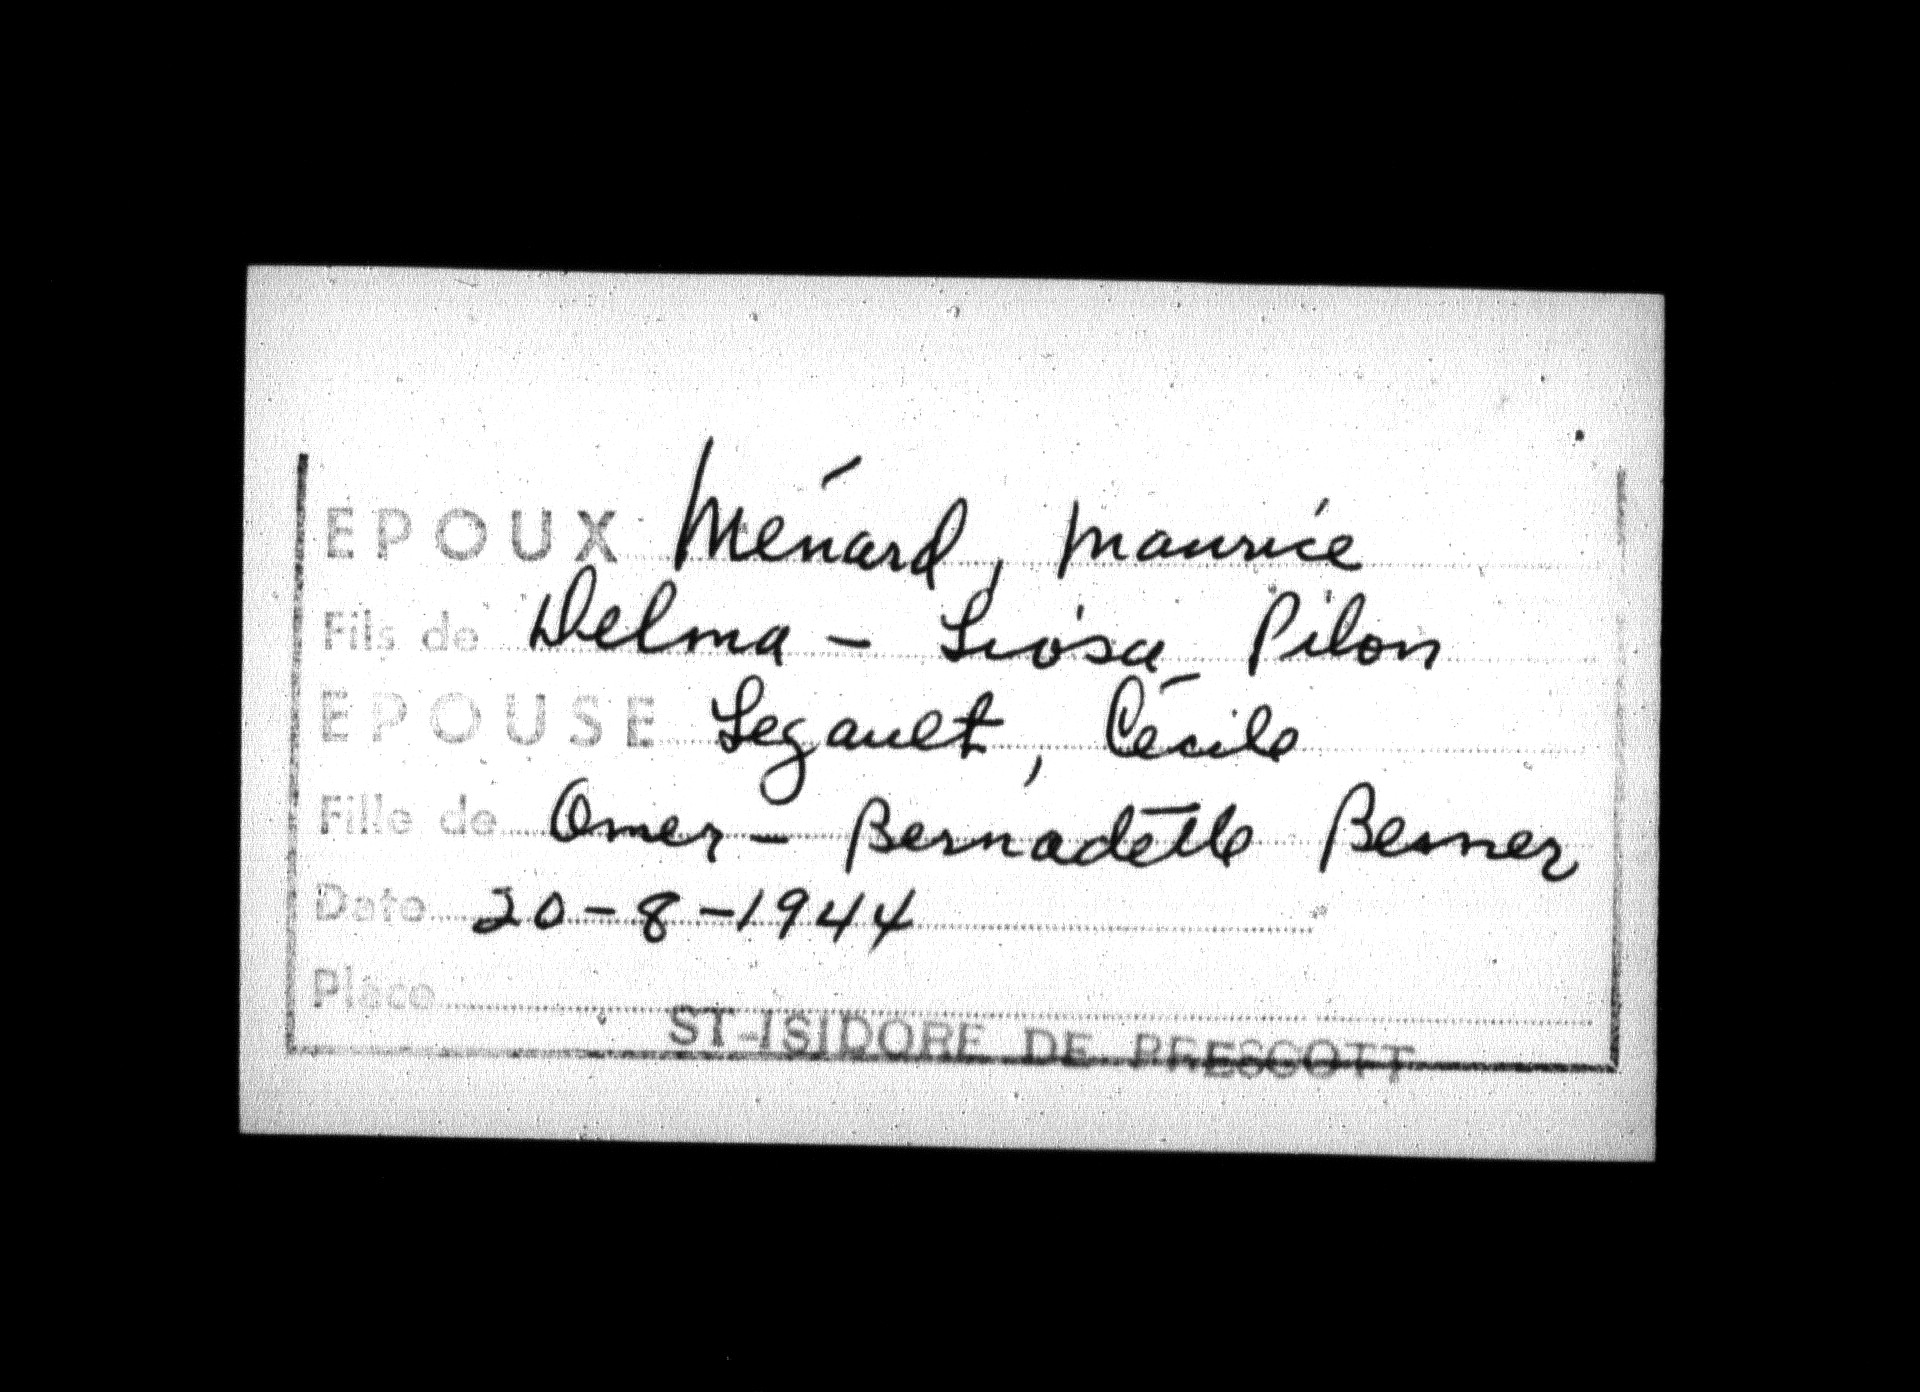 EPOUX Ménard, Maurice
Fils de Delma - Liosa Pilon
EPOUSE Legault, Cécile
Fille de Omer - Bernadette Besner
Date 20-8-1944
Place
ST-ISIDORE DE PRESCOTT